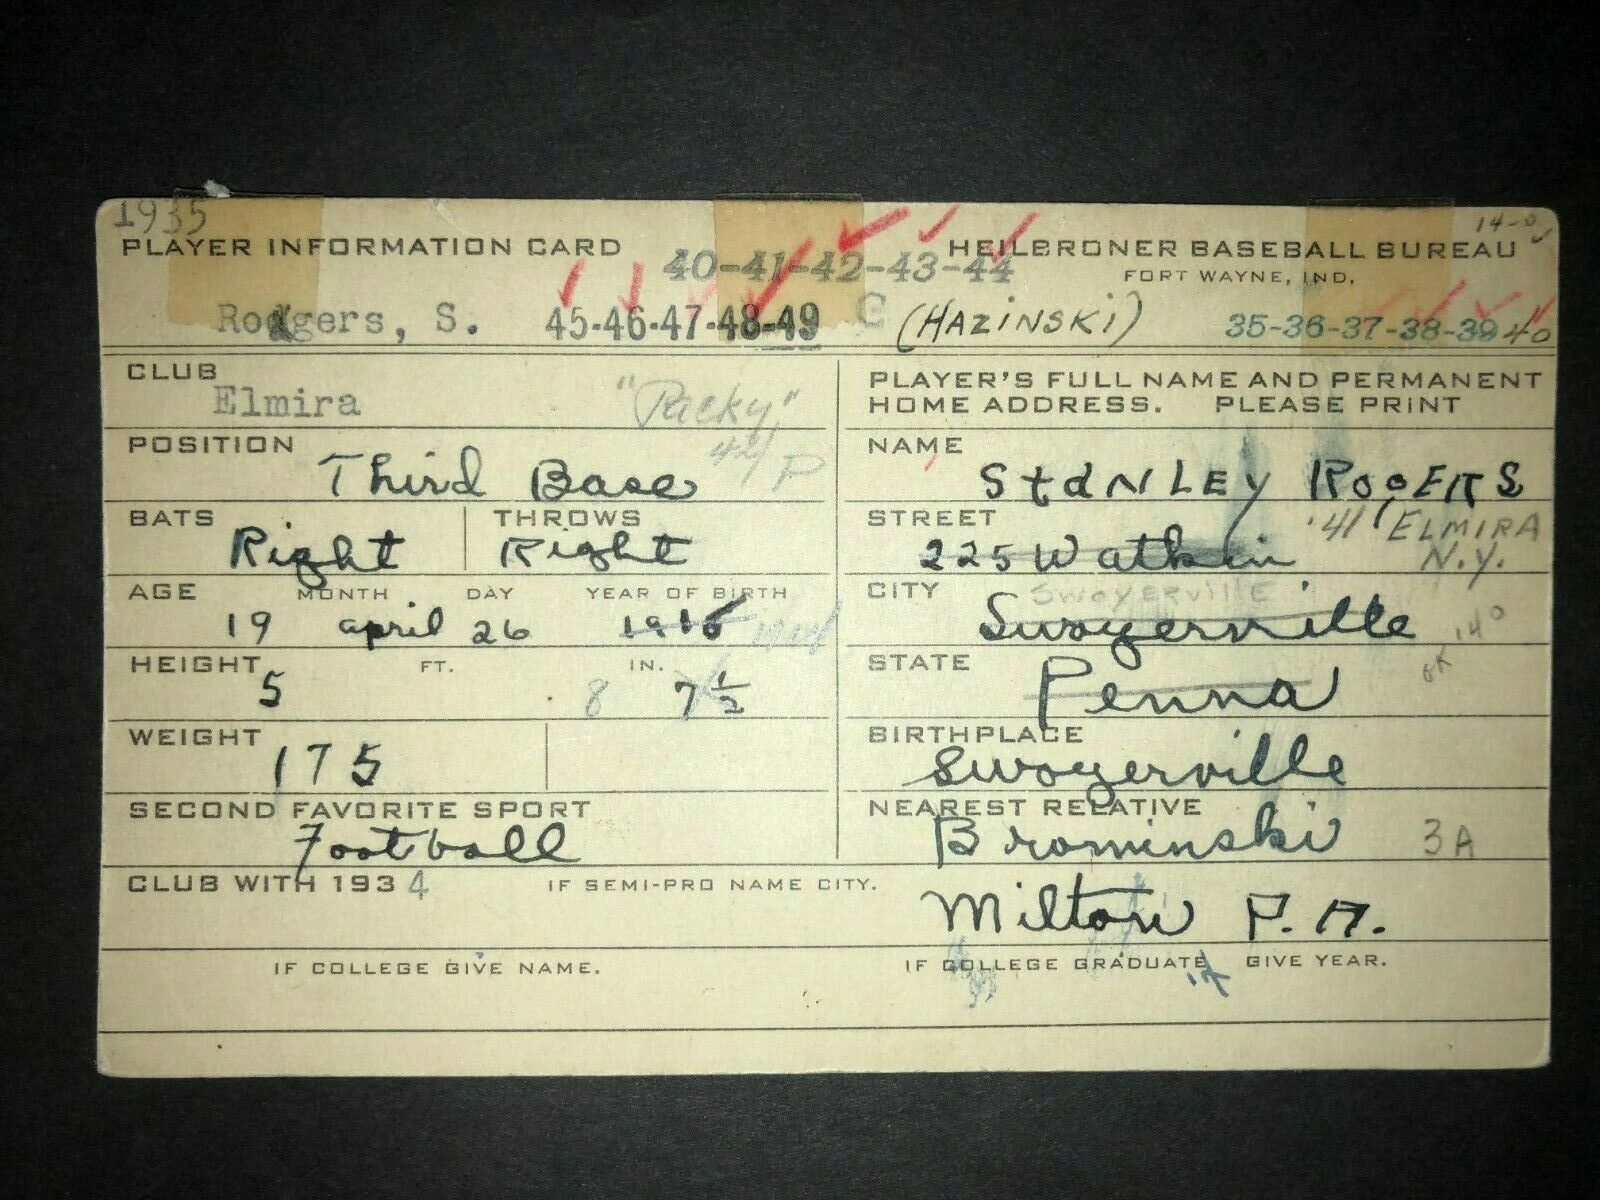 1935
14-0
PLAYER INFORMATION CARD 40-41-42-43-44 HEILBRONER BASEBALL BUREAU
FORT WAYNE, IND.
Rodgers, S. 45-46-47-48-49 C (HAZINSKI) 35-36-37-38-39 40
CLUB
Elmira "Packy"
44 P
POSITION
Third Base
BATS Right THROWS Right
AGE MONTH DAY YEAR OF BIRTH
19 april 26 1916 1914
HEIGHT FT. IN.
5 8 7 1/2
WEIGHT
175
SECOND FAVORITE SPORT
Football
CLUB WITH 1934 IF SEMI-PRO NAME CITY.
IF COLLEGE GIVE NAME.
PLAYER'S FULL NAME AND PERMANENT
HOME ADDRESS. PLEASE PRINT
NAME
StaNLEY RogERS
STREET '41 ELMIRA
225 Watkin N.Y.
CITY SWOYERVILLE
Swoyerville
STATE OK '40
Penna
BIRTHPLACE
Swoyerville
NEAREST RELATIVE
Brominski 3A
Milton P.A.
IF COLLEGE GRADUATE GIVE YEAR.